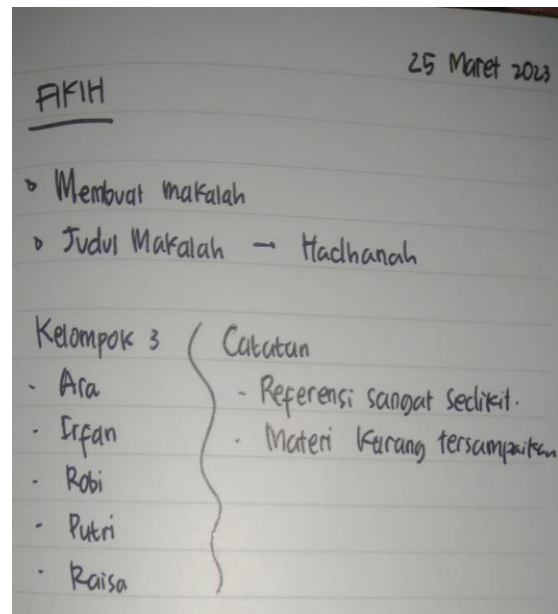 25 Maret 2023
FIKIH
◦ Membuat makalah
◦ Judul Makalah → Hadhanah
Kelompok 3
- Ara
- Irfan
- Robi
- Putri
- Raisa
Catatan
- Referensi sangat sedikit.
- Materi kurang tersampaikan